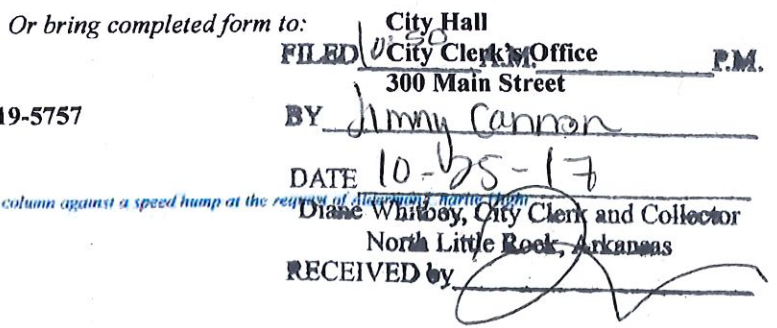 Or bring completed form to: City Hall
FILED 10:50 A.M. City Clerk's Office P.M.
300 Main Street
19-5757
BY Jimmy Cannon
DATE 10-25-17
column against a speed hump at the request of
Diane Whitbey, City Clerk and Collector
North Little Rock, Arkansas
RECEIVED by